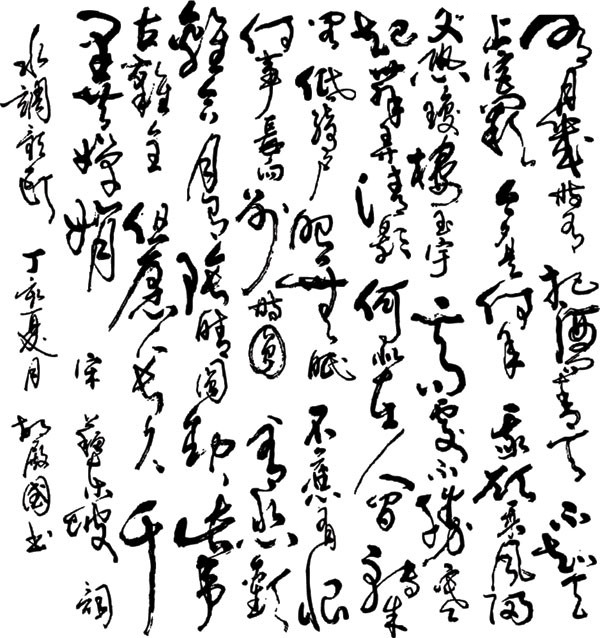 明月幾時有把酒問青天不知天
上宮闕今夕是何年我欲乘風歸
又恐瓊樓玉宇高處不勝寒
起舞弄清影何似在人間轉朱
閣低綺戶照無眠不應有恨
何事長向別時圓人有悲歡
離合月有陰晴圓缺此事
古難全但願人長久千
里共嬋娟 宋 蘇東坡 詞
水調歌頭 丁亥夏月 國書